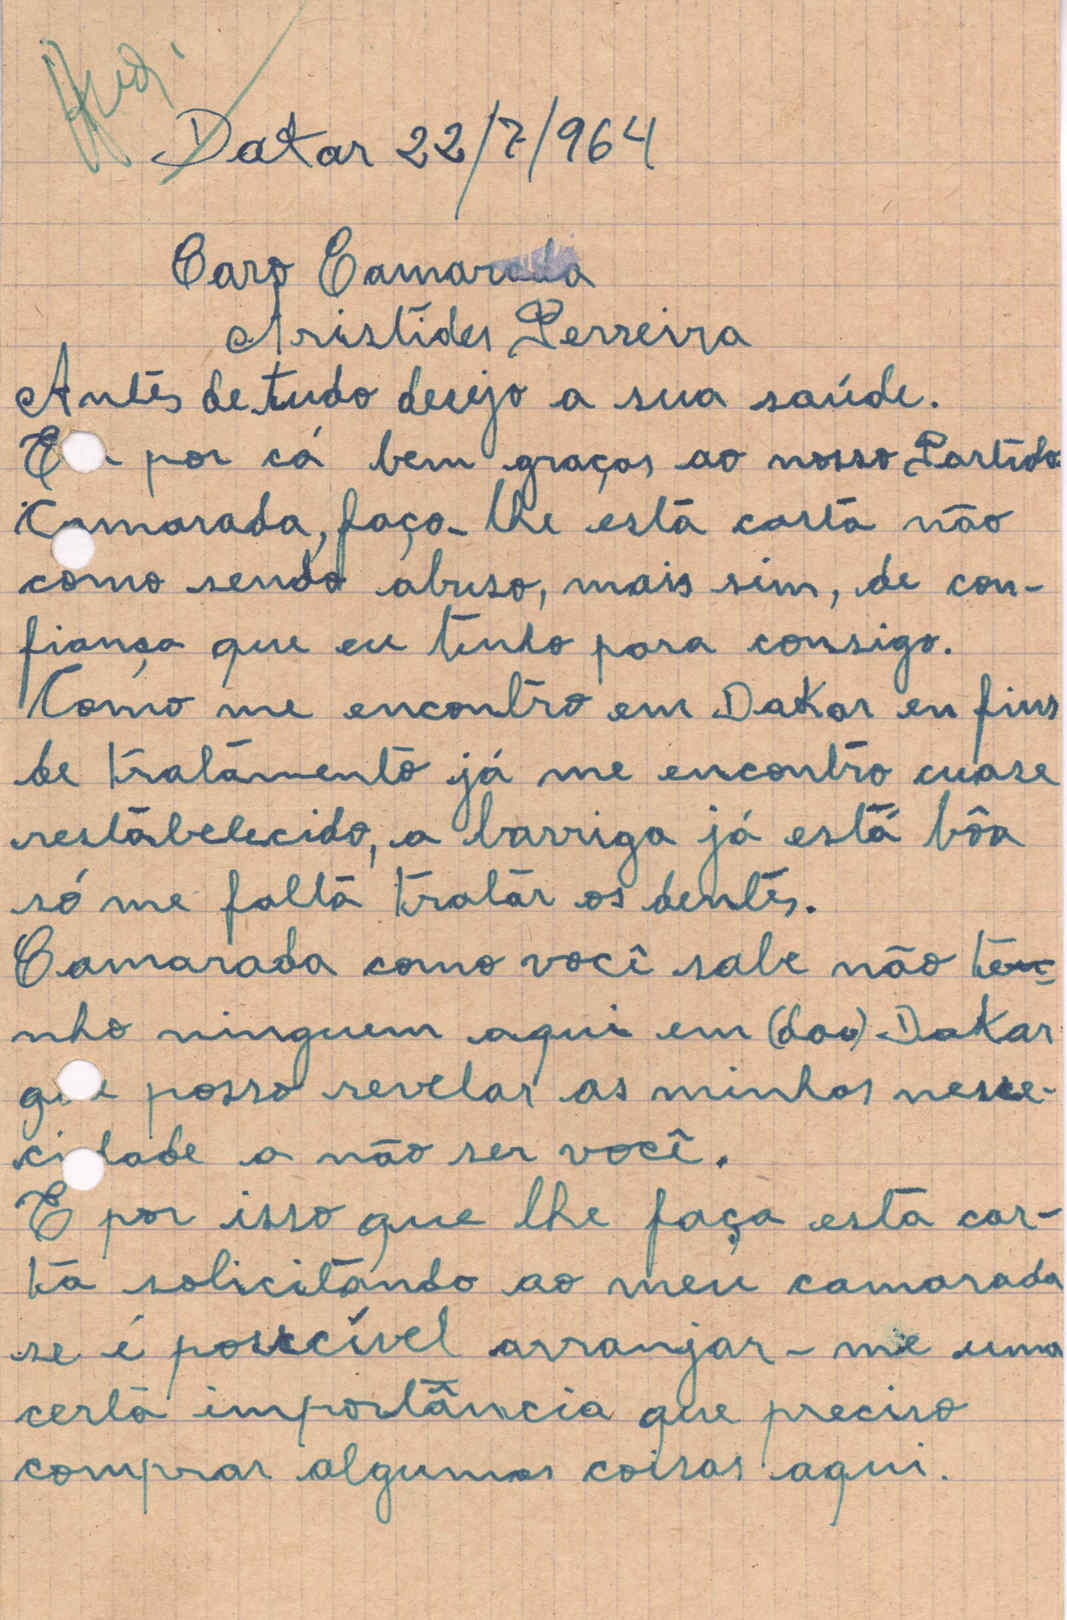 Dakar 22/7/964
Caro Camarada
Aristides Perreira
Antes de tudo desejo a sua saúde.
Eu por cá bem graças ao nosso Partido.
Camarada, faço-lhe está carta não
como sendo abuso, mais sim, de con-
fiança que eu tenho para consigo.
Como me encontro em Dakar en fins
de tratamento já me encontro cuase
restabelecido, a barriga já está bôa
só me falta tratar os dentes.
Camarada como você sabe não te
nho ninguem aqui em (dou) Dakar
que posso revelar as minhas nesse-
cidade a não ser você.
E por isso que lhe faça esta car-
ta solicitando ao meu camarada
se é possicível arranjar-me uma
certa importância que preciso
comprar algumas coisas aqui.